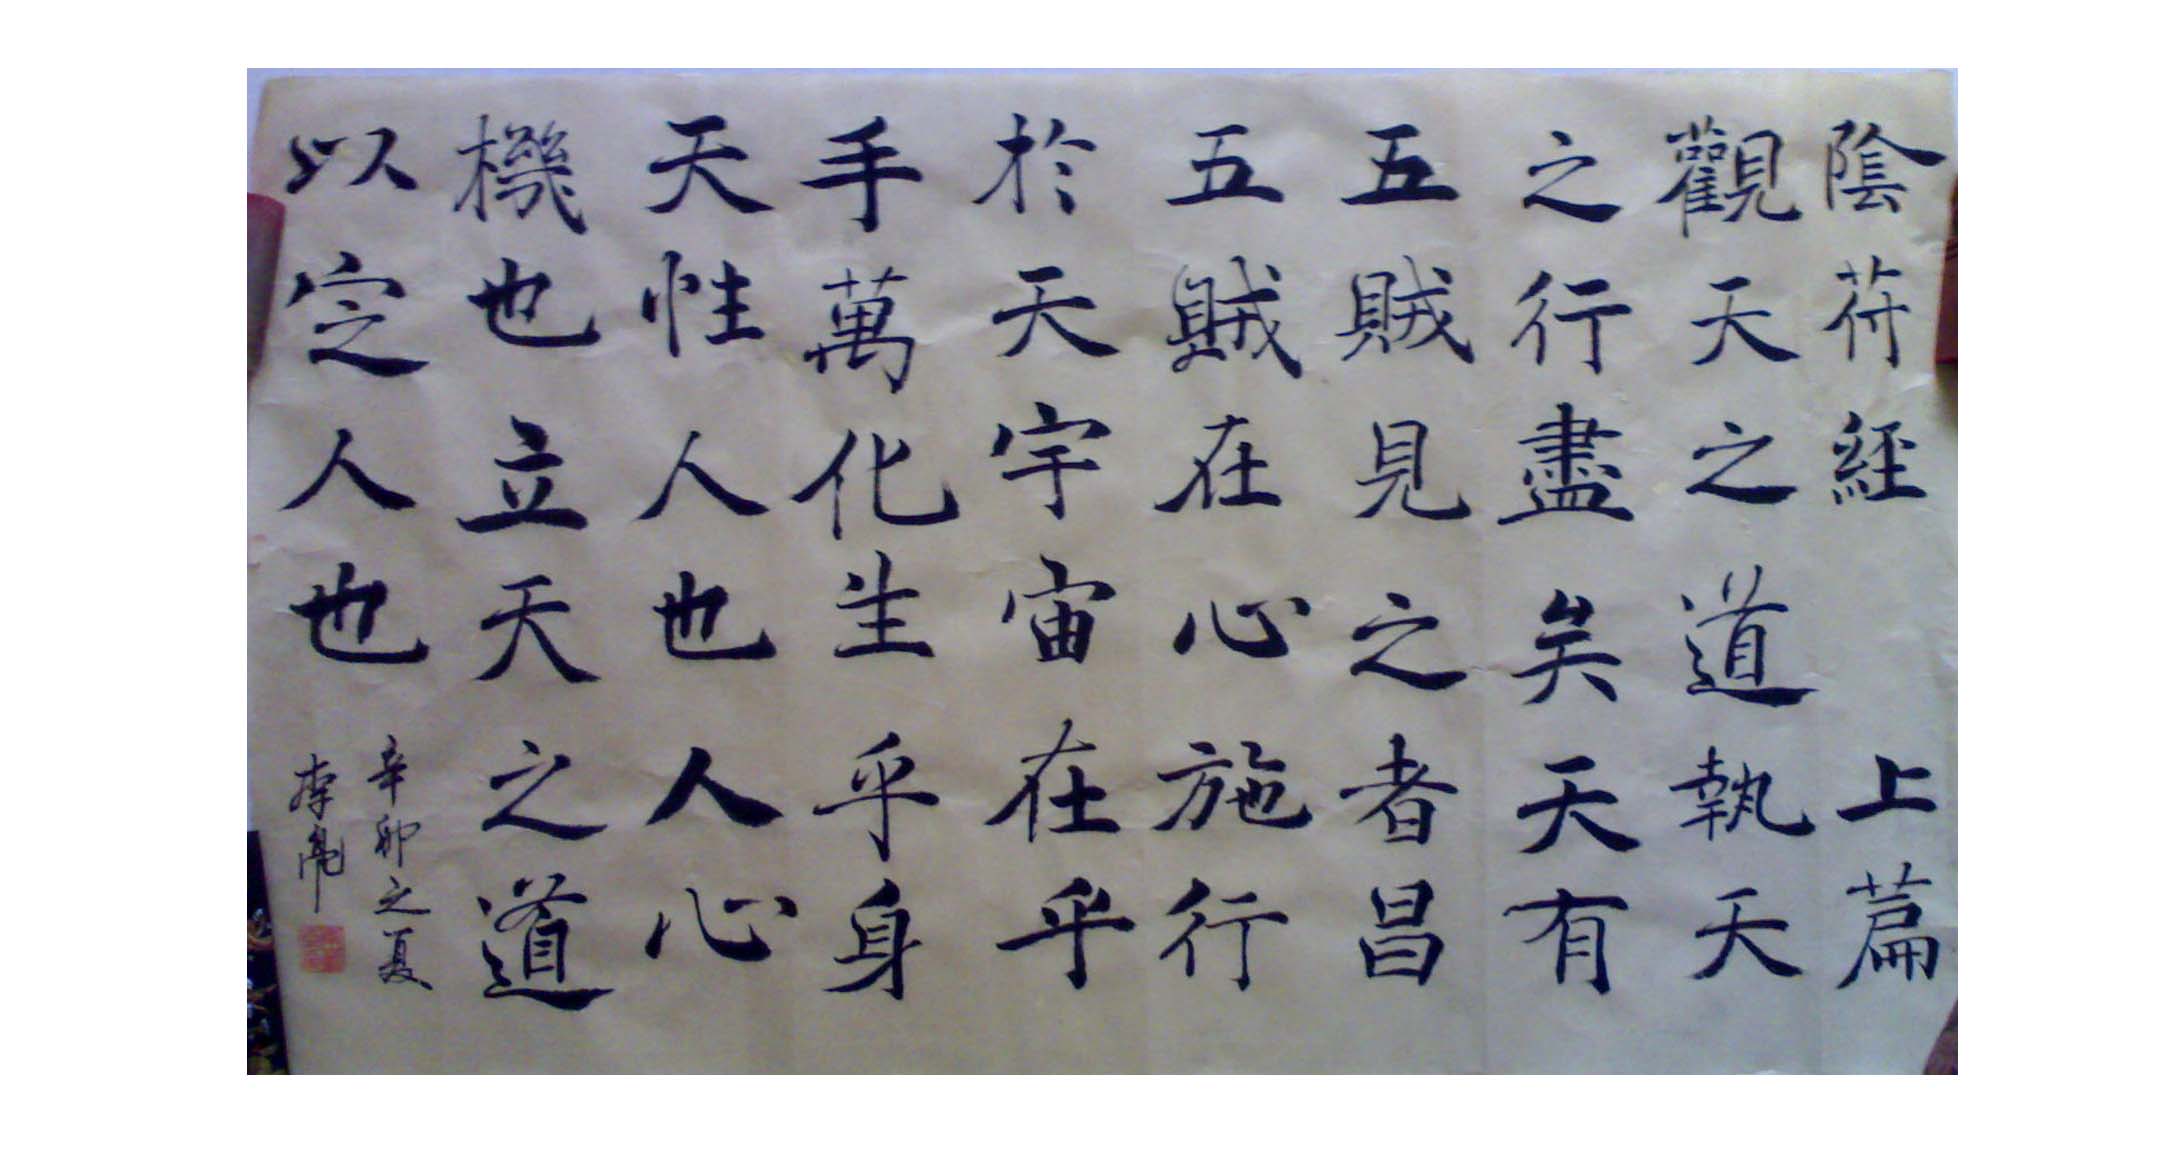 陰苻經 上篇
觀天之道執天
之行盡矣天有
五賊見之者昌
五賊在心施行
於天宇宙在乎
手萬化生乎身
天性人也人心
機也立天之道
以定人也
辛卯之夏
李亮